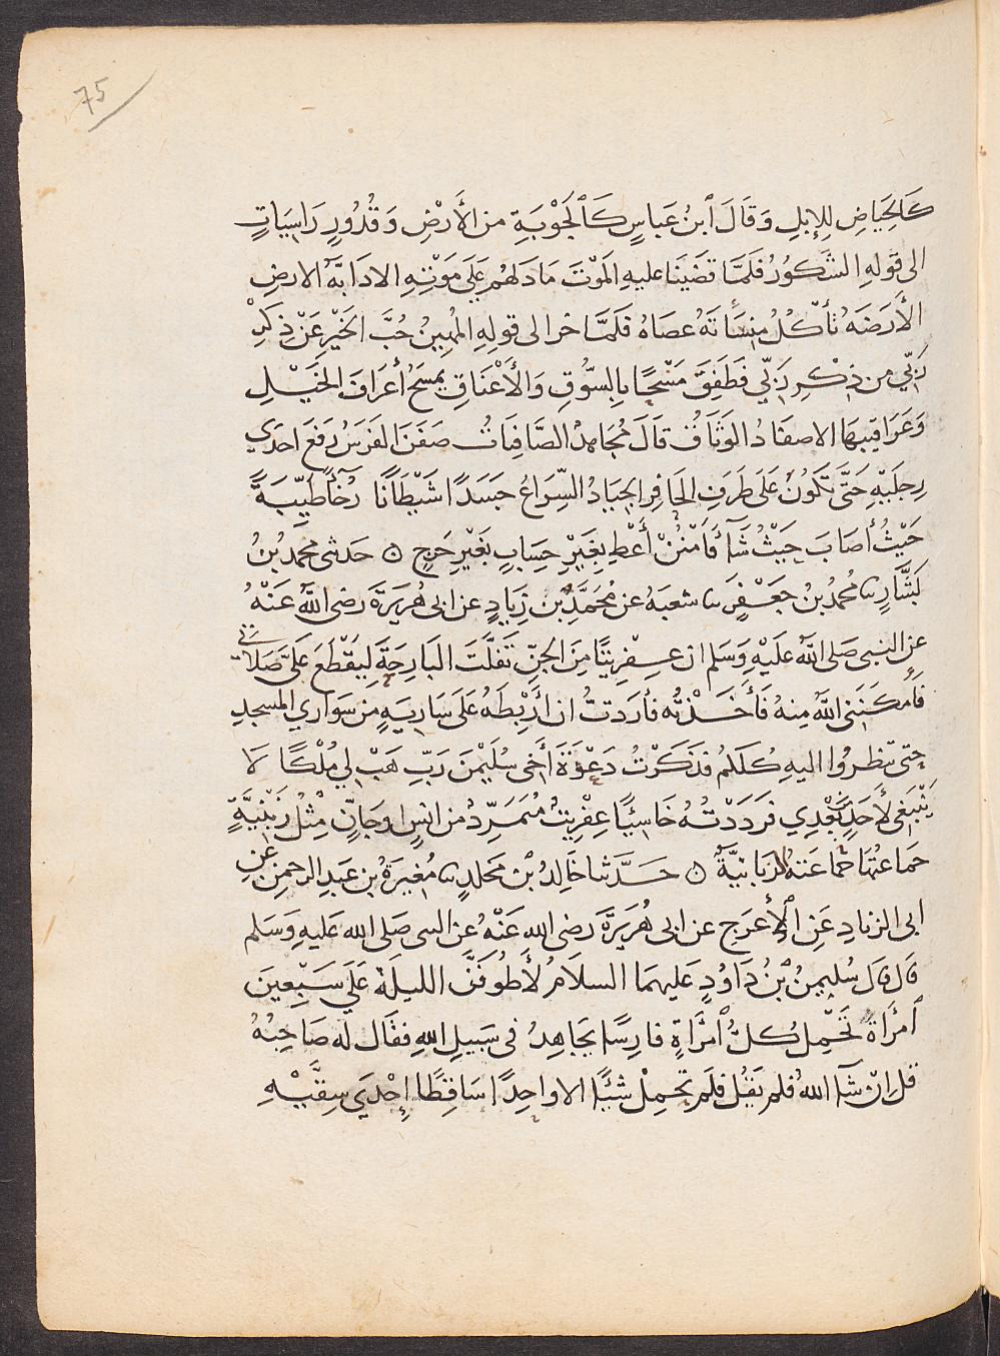 75
كَالْحِيَاضِ لِلْإِبِلِ وَقَالَ ٱبنُ عَباسٍ كَالْجَوْبَةِ من الأَرْضِ وَقُدُورٍ رَاسِيَاتٍ
الى قولهِ الشَّكُورُ فَلَمَّا قضَيْنَا عليهِ المَوْتَ مَا دَلهُم عَلَي مَوْتِهِ الا دَابَّةُ الارضِ
الأَرَضَةُ تَأْكُلُ مِنْسَأَتَهُ عصَاهُ فَلمَّا خر الى قولِهِ المُهِينُ حُبَّ الخَيْرِ عَنْ ذِكْرِ
رَبِّي من ذِكْرِ رَبِّي فَطَفِقَ مَسْحًا بِالسُّوقِ وَالأَعْنَاقِ يمسَحُ أَعرَافَ الخَيْلِ
وَعَرَاقيبَهَا الاصفَادُ الوَثَاقُ قَالَ مُجَاهدٌ الصَّافِنَاتُ صَفَنَ الفَرَسُ رَفَعَ احدَي
رِجلَيْهِ حَتَّى تَكُونُ عَلَى طَرَفِ الحَافِرِ الجِيَادُ السِّرَاعُ جَسَدًا شَيْطَانًا رُخَآءً طَيِّبَةً
حَيْثُ أَصَابَ حَيْثُ شَآءَ فَامْنُنْ أَعْطِ بِغَيْرِ حِسَابٍ بغَيْرِ حَرَجٍ ۝ حَدثنى محمدُ بْنُ
بَشَّارٍ ثنا مُحمدُ بنُ جَعْفَرٍ ثنا شعبَهُ عن مُحَمَّدِ بن زِيَادٍ عن ابى هُرَيرَةَ رضى اللهُ عَنْهُ
عنِ النبى صَلى اللهُ عَلَيْهِ وَسَلم ان عِفْرِيتًا مِنَ الجِنِّ تَفَلَّتَ البَارِحَةَ لِيَقْطَعَ عَلَىَّ صَلَاتى
فَأَمْكَنَنى اللهُ مِنهُ فَأَخَذْتُه فأرَدتُ ان أَرْبِطَهُ عَلَى سَاريَةٍ من سَوَاري المسجدِ
حتى تنظرُوا اليهِ كُلكُمُ فذكَرْتُ دَعْوَةَ أَخى سُلَيْمٰنَ رَبِّ هَبْ لي مُلْكًا لَا
يَنْبَغى لأَحَدٍ بَعْدِي فَرَدَدْتُهُ خَاسِئًا عِفْرِيتٌ مُتَمَرِّدٌ من انسٍ اوجَانٍّ مِثْلُ زَبْنِيَّةٍ
جمَاعتُهَا جمَاعَته الزبَانِيَّةُ ۝ حَدَّثنا خَالِدُ بْنُ مَخلدٍ ثنا مُغِيرَةُ بن عَبدِ الرحمنِ عَنِ
ابى الزنادِ عَنِ الأَعرَجِ عن ابى هُرَيرَةَ رضى الله عَنْهُ عن النبى صَلى الله عَليهِ وَسَلم
قال قال سُليمنُ بْنُ دَاوُدٍ عَليهمَا السلَامُ لَأَطُوفَنَّ الليلَةَ عَلَي سَبْعِينَ
ٱمرَأَةً تَحْمِلُ كُلُّ ٱمرَأَةٍ فارِسًا يجَاهِدُ فى سَبيلِ اللهِ فقَال له صَاحِبُهُ
قل إِنْ شَآءَ اللهُ فلم يَقُلْ فَلَم تحمِلْ شَيْئًا الا واحِدًا سَاقِطًا إِحْدَي شِقَّيْهِ